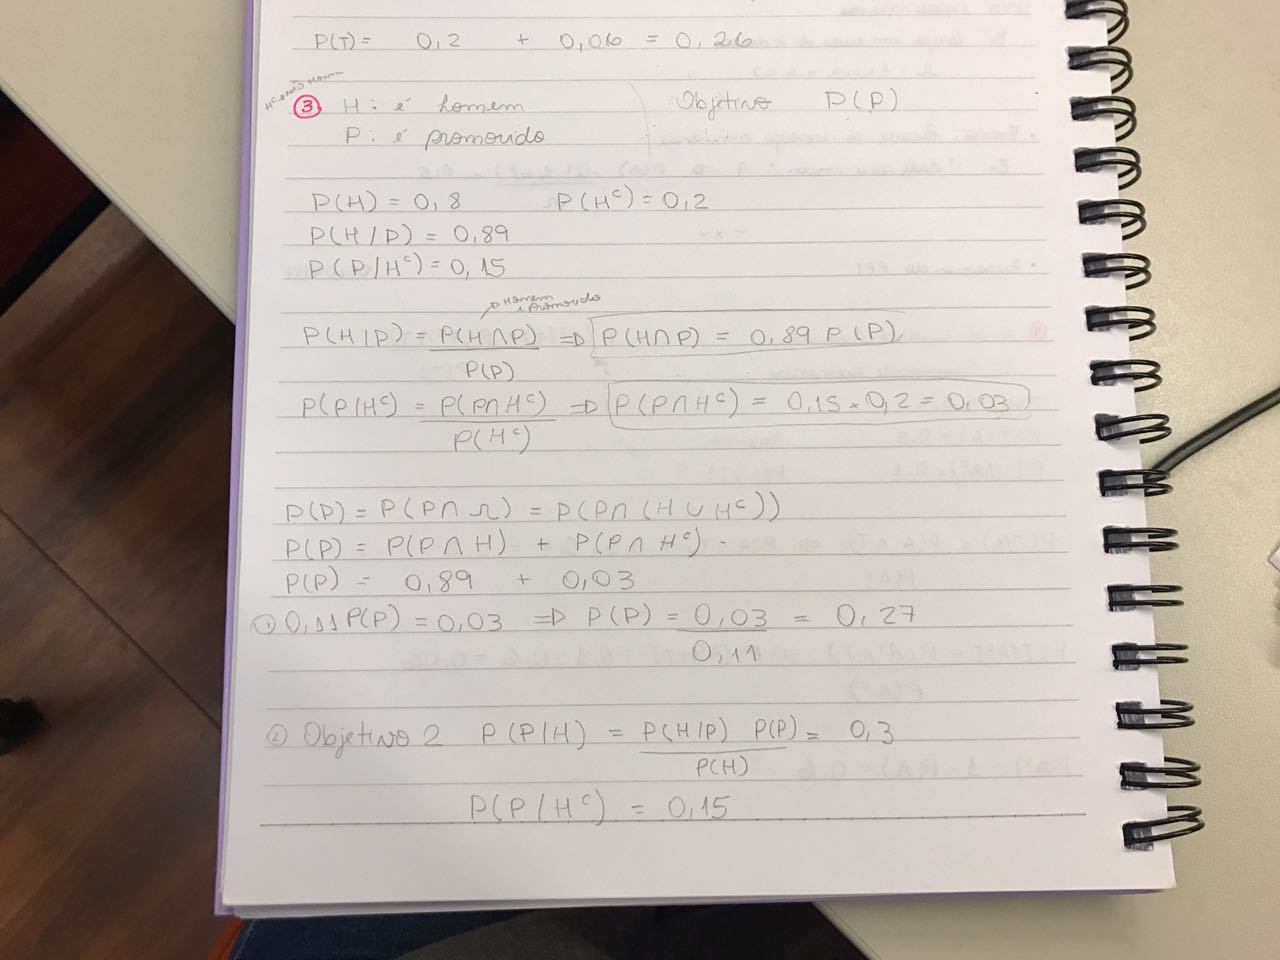 P(T) = 0,2 + 0,06 = 0,26
Hᶜ: não Homem
③ H: é homem Objetivo P(P)
P: é promovido
P(H) = 0,8 P(Hᶜ) = 0,2
P(H/P) = 0,89
P(P/Hᶜ) = 0,15
Homem e Promovido
P(H/P) = P(H∩P) ⇒ P(H∩P) = 0,89 P(P)
P(P)
P(P/Hᶜ) = P(P∩Hᶜ) ⇒ P(P∩Hᶜ) = 0,15 × 0,2 = 0,03
P(Hᶜ)
P(P) = P(P∩Ω) = P(P∩(H∪Hᶜ))
P(P) = P(P∩H) + P(P∩Hᶜ)
P(P) = 0,89 + 0,03
① 0,11 P(P) = 0,03 ⇒ P(P) = 0,03 = 0,27
0,11
② Objetivo 2 P(P/H) = P(H/P) P(P) = 0,3
P(H)
P(P/Hᶜ) = 0,15